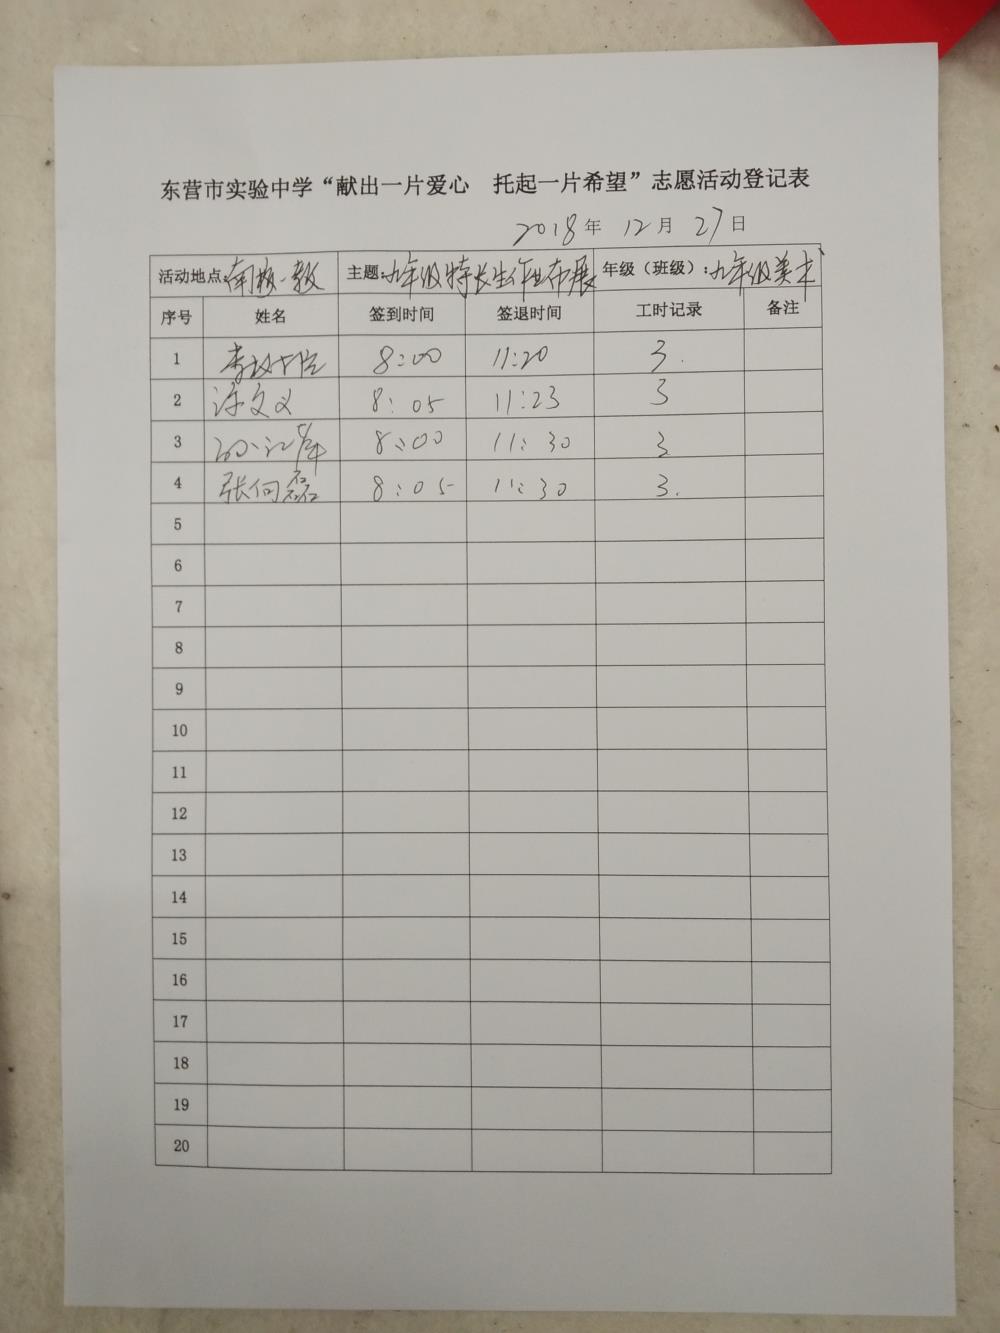 东营市实验中学“献出一片爱心 托起一片希望”志愿活动登记表
2018年 12月 27日
活动地点: 南校一教 主题: 九年级特长生作业布展 年级（班级）: 九年级美术
序号 姓名 签到时间 签退时间 工时记录 备注
1 8:00 11:20 3.
2 文义 8:05 11:23 3
3 8:00 11:30 3
4 张向磊 8:05 11:30 3.
5
6
7
8
9
10
11
12
13
14
15
16
17
18
19
20